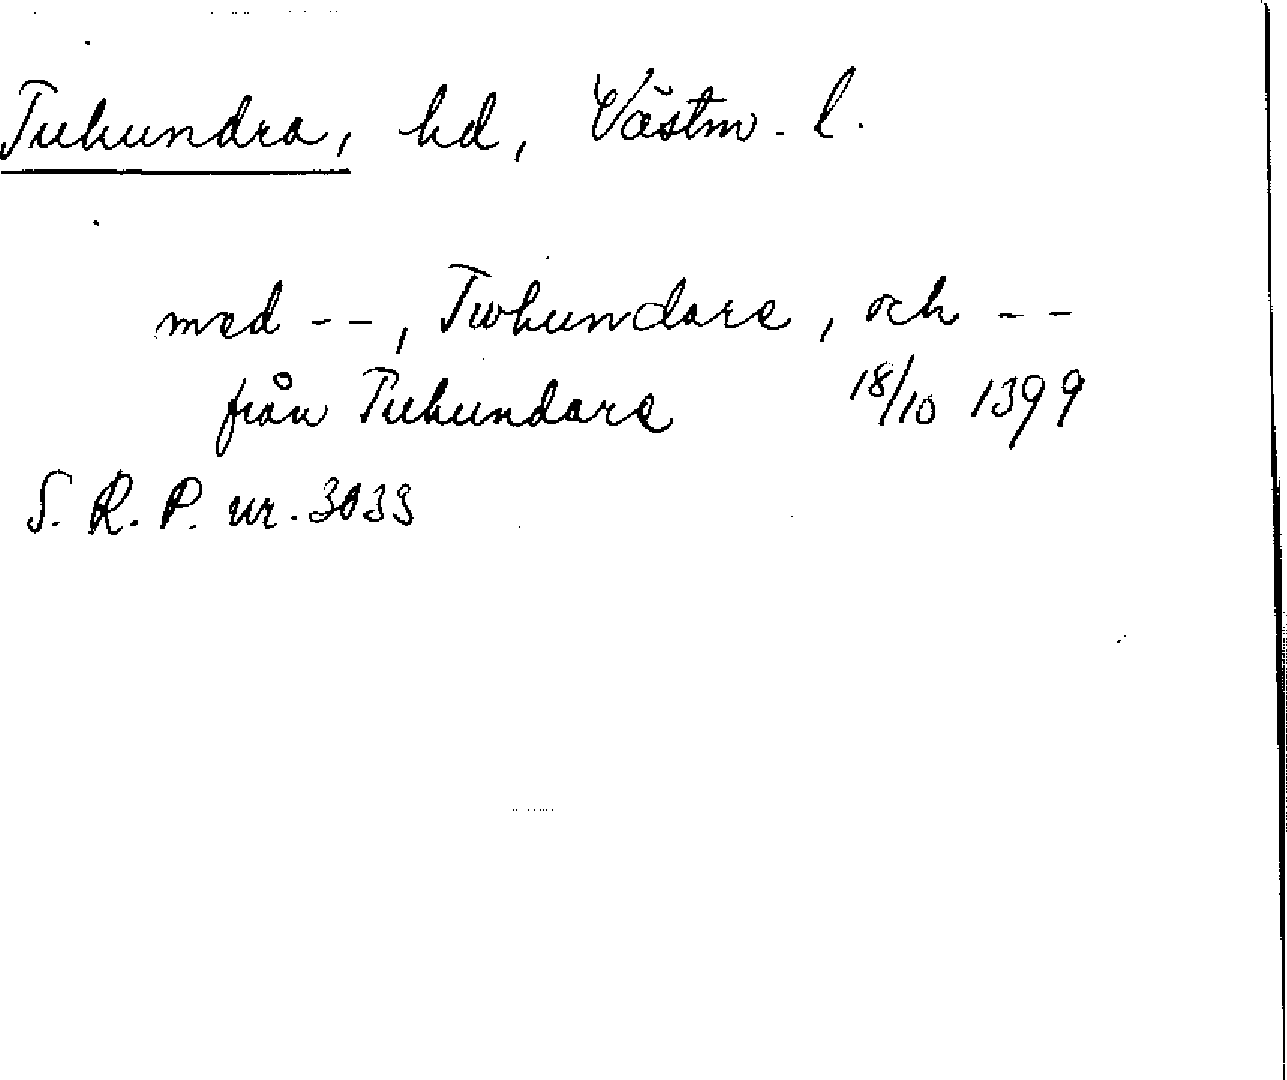 Tuhundra, hd, Västm. l.
med --, Twhundare, och --
från Tuhundare 18/10 1399
S. R. P. nr. 3033